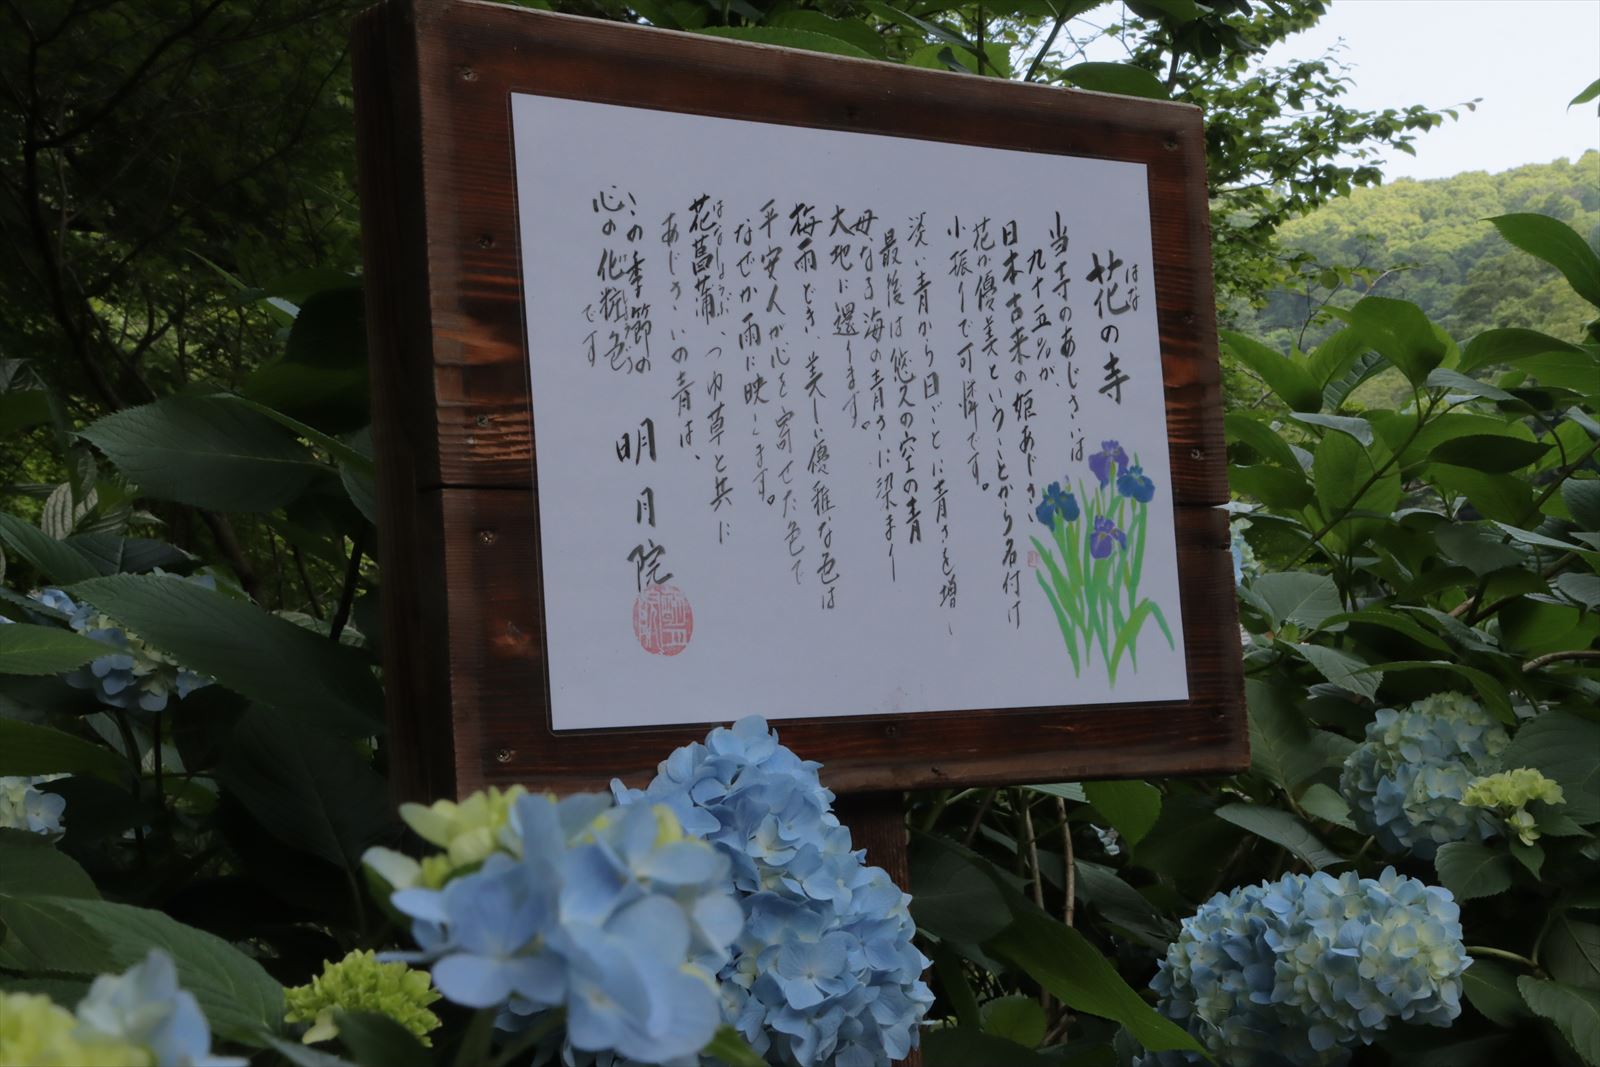 花の寺
はな
当寺のあじさいは
九十五%が、
日本古来の姫あじさい
花が優美ということから名付け
小振りで可憐です。
淡い青から日ごとに青さを増し
最後は悠久の空の青
母なる海の青さに染まり
大地に還ります。
梅雨どき、美しい優雅な色は
平安人が心を寄せた色で
なぜか雨に映えます。
花菖蒲、つゆ草と共に
はなしょうぶ
あじさいの青は、
この季節の
心の化粧色です
明月院